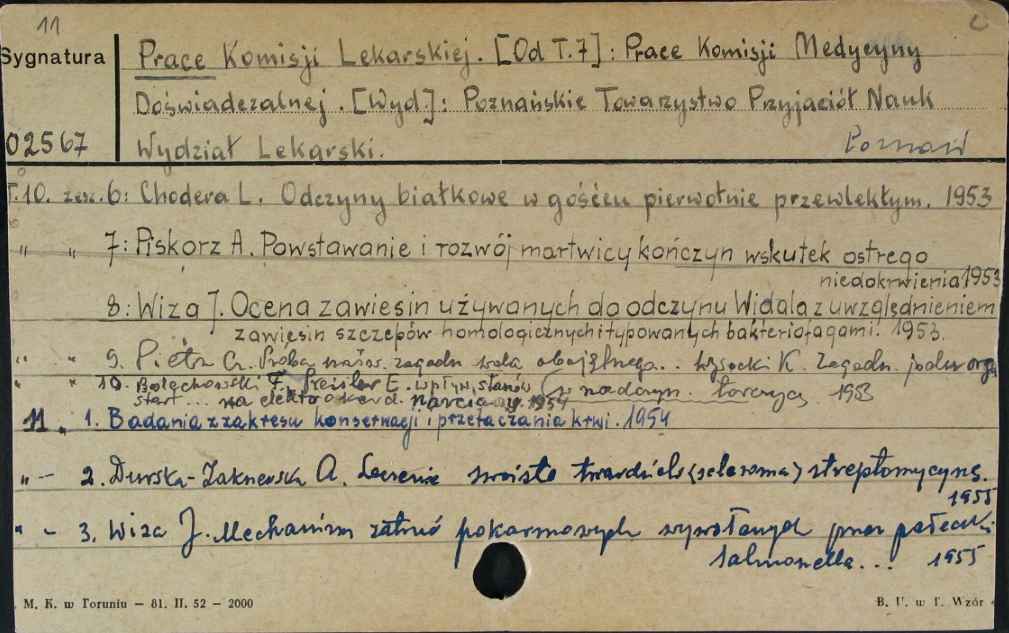 11
Sygnatura
Prace Komisji Lekarskiej. [Od T.7]: Prace Komisji Medycyny
Doświadczalnej. [Wyd.]: Poznańskie Towarzystwo Przyjaciół Nauk
02567 Wydział Lekarski. Poznań
T.10. zesz. 6: Chodera L. Odczyny białkowe w gośćcu pierwotnie przewlekłym. 1953
" " 7: Piskorz A. Powstawanie i rozwój martwicy kończyn wskutek ostrego
niedokrwienia 1953
8: Wiza J. Ocena zawiesin używanych do odczynu Widala z uwzględnieniem
zawiesin szczepów homologicznych i typowanych bakteriofagami. 1953.
" " 9. Próba zagadn. wola obojętnego... Wysocki K. Zagadn.
" " 10. Bolechowski F. Preisler E. Wpływ stanów 1953
na
11. 1. Badania z zakresu konserwacji i przetaczania krwi. 1954
" - 2. Durska-Zakrzewska A. Leczenie twardzieli (scleroma) streptomycyną.
1955
" - 3. Wiza J. Mechanizm zatruć pokarmowych wywołanych przez pałeczki
Salmonella... 1955
M. K. w Toruniu – 81. II. 52 – 2000
B. U. w T. Wzór